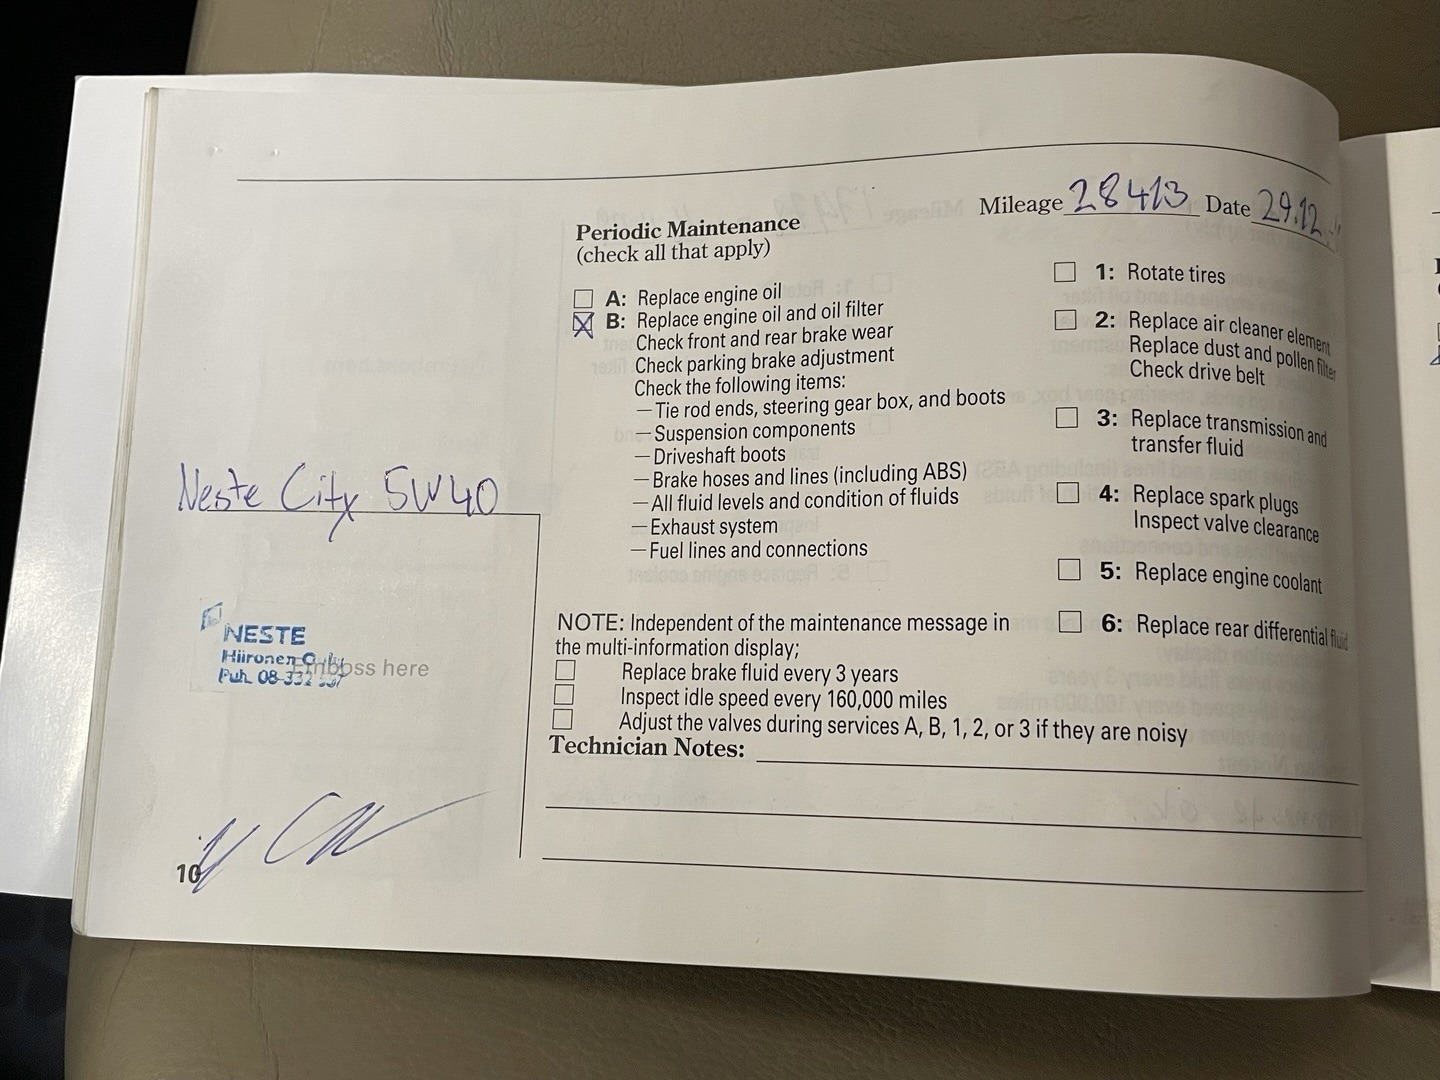 Mileage 28413 Date 29.12
Periodic Maintenance
(check all that apply)
A: Replace engine oil
B: Replace engine oil and oil filter
Check front and rear brake wear
Check parking brake adjustment
Check the following items:
—Tie rod ends, steering gear box, and boots
—Suspension components
—Driveshaft boots
—Brake hoses and lines (including ABS)
—All fluid levels and condition of fluids
—Exhaust system
—Fuel lines and connections
1: Rotate tires
2: Replace air cleaner element
Replace dust and pollen filter
Check drive belt
3: Replace transmission and
transfer fluid
4: Replace spark plugs
Inspect valve clearance
5: Replace engine coolant
6: Replace rear differential fluid
NOTE: Independent of the maintenance message in
the multi-information display;
Replace brake fluid every 3 years
Inspect idle speed every 160,000 miles
Adjust the valves during services A, B, 1, 2, or 3 if they are noisy
Technician Notes:
Neste City 5W40
NESTE
Hiironen
Puh. 08-332
Emboss here
10